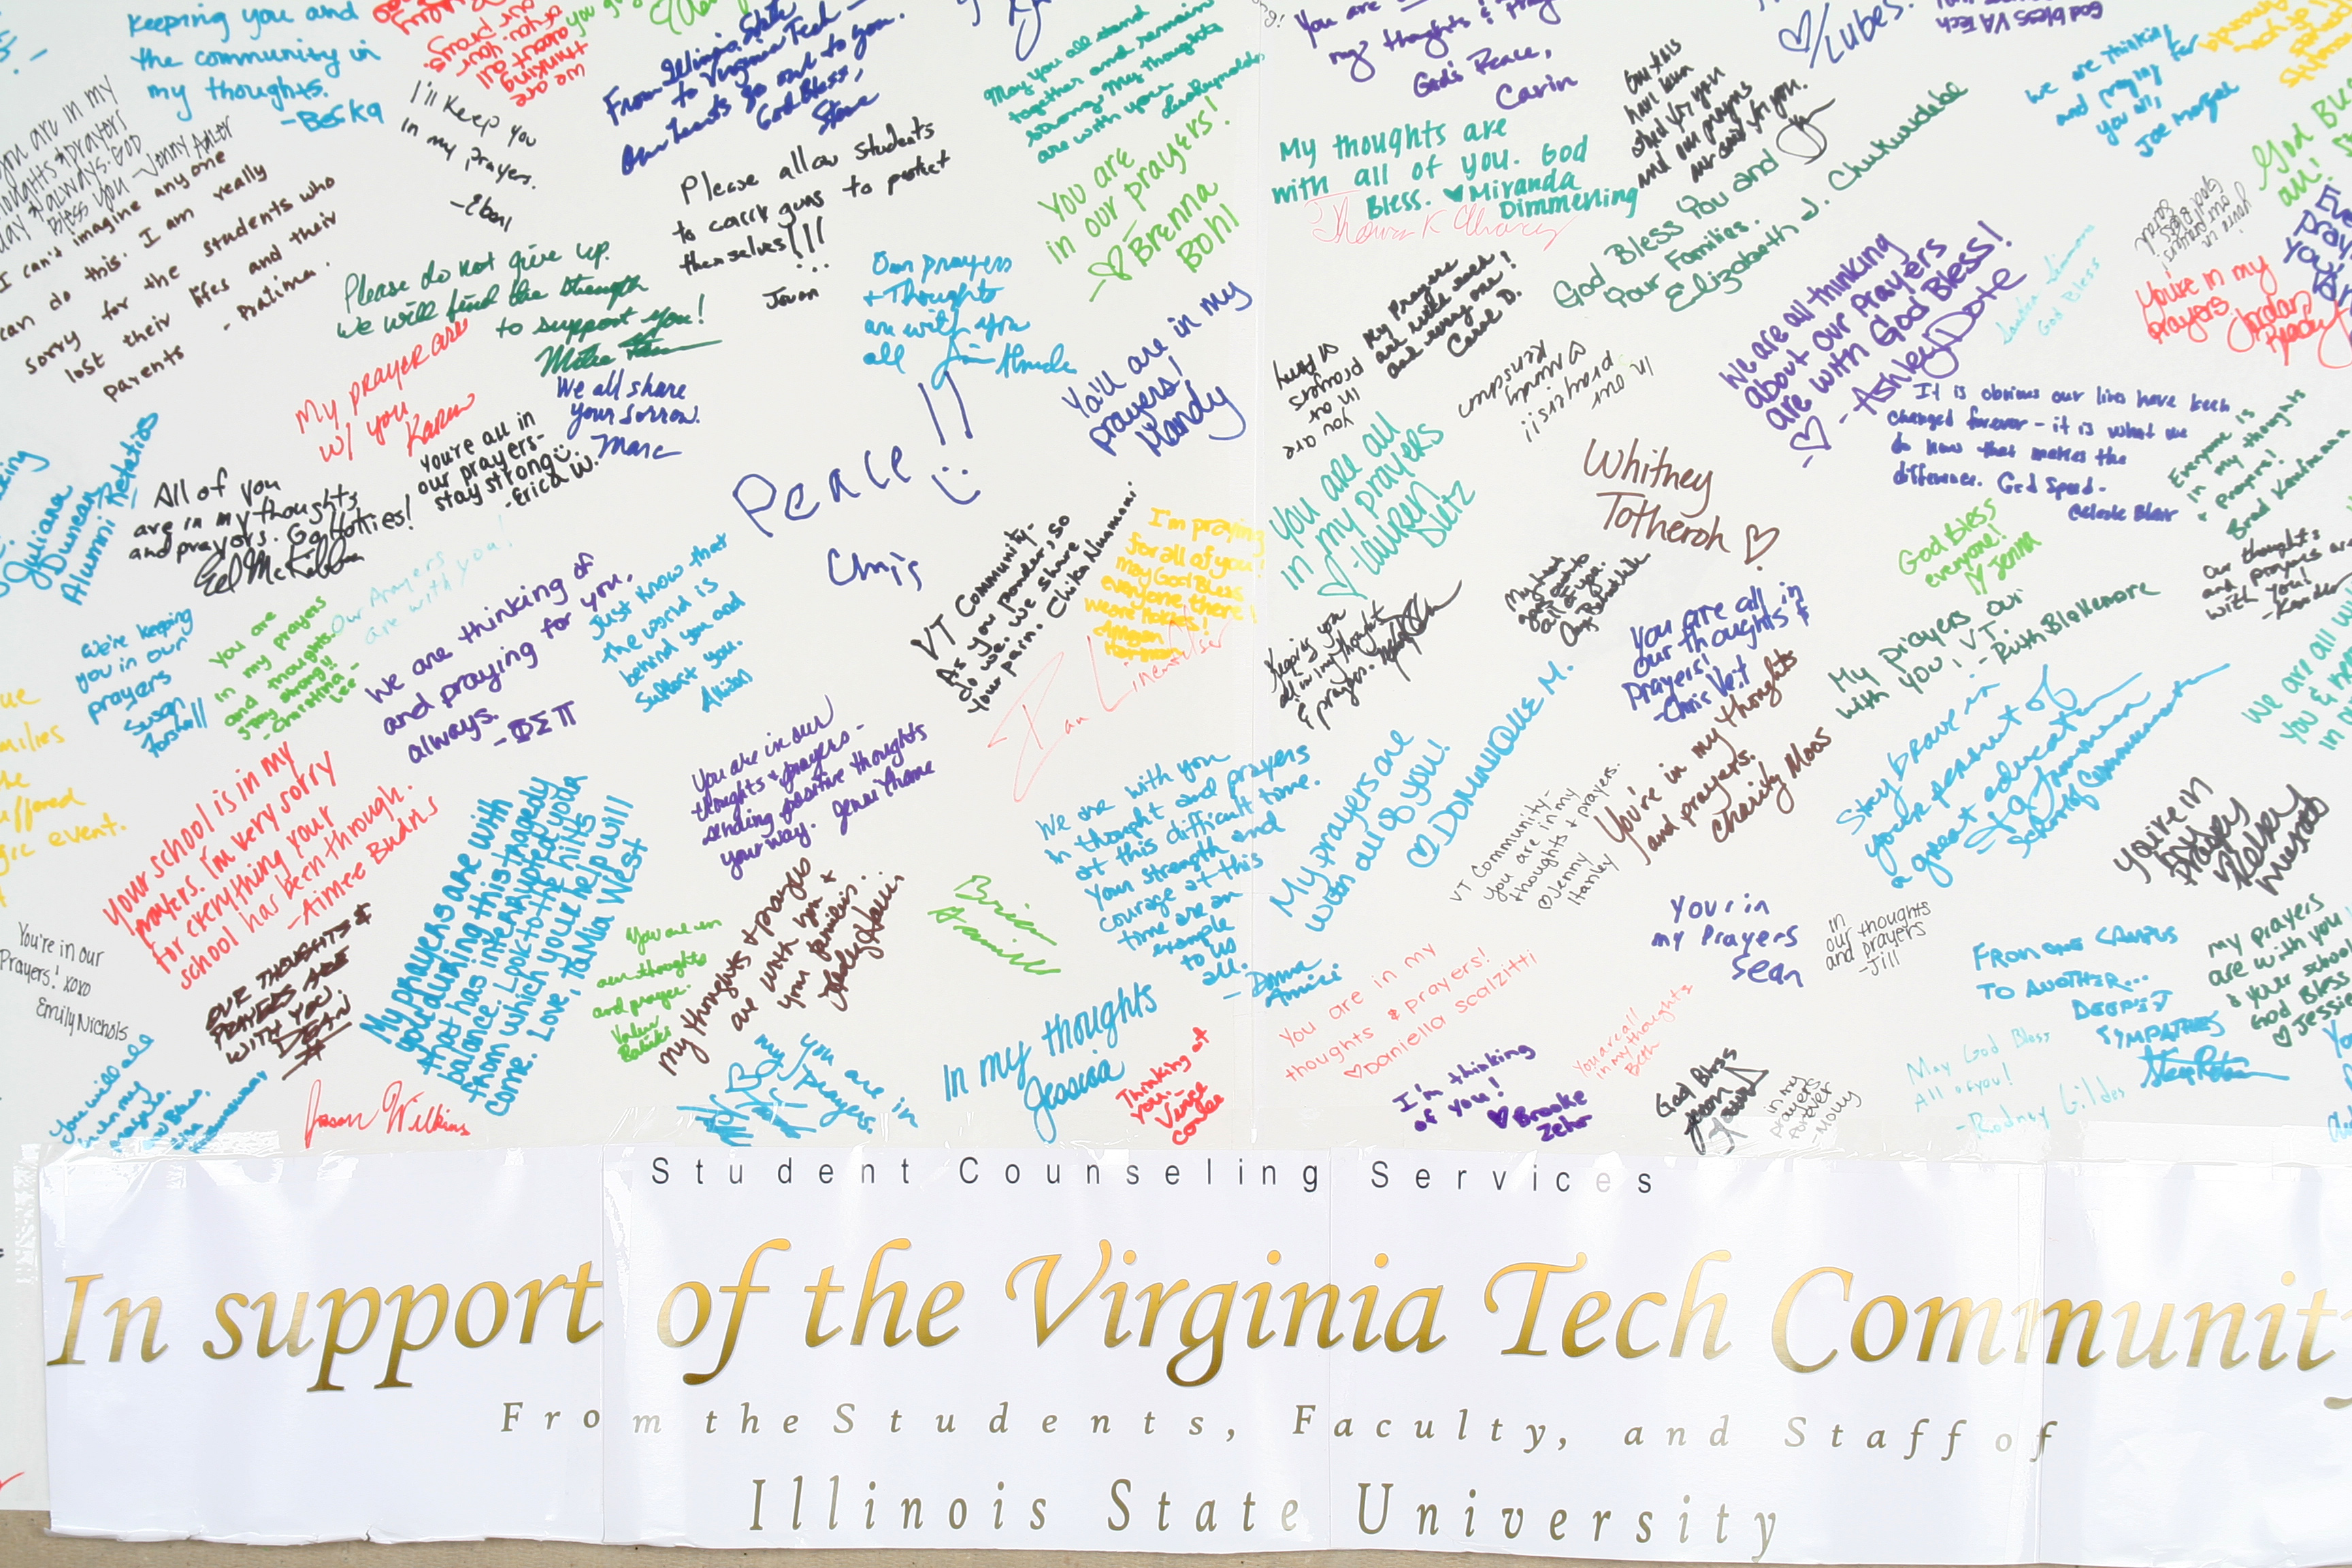 keeping you and
the community in
my thoughts.
-Becka
we are
thinking
about all
of you.
From Illinois State
to Virginia Tech -
Our hearts go out to you.
God Bless,
Steve
May you all stand
together and remain
strong. My thoughts
are with you.
You are
my thoughts &
God's Peace,
Carin
God bless VA Tech
we are thinking
and praying for
you all,
Joe Morgan
you are in my
thoughts & prayers
day & always. God
Bless you - Jonny Adler
I'll keep you
in my prayers.
-Eboni
I can't imagine anyone
can do this. I am really
sorry for the students who
lost their lifes and their
parents - Pratima.
Please allow students
to carry guns to protect
themselves!!!
Jovan
You are
in our prayers!
♡ Brenna
Bohl
My thoughts are
with all of you. God
Bless. ♥Miranda
Dimmerling
and our prayers
are with you.
God Bless You and
Your Families.
Elizabeth J. Chukwudebe
God Bless
You're in my
prayers.
Jordan
Please do not give up.
We will find the strength
to support you!
Our prayers
+ Thoughts
are with you
all
My prayers
are with each
and every one!
You are
in our
prayers
in our
prayers!!
♡ Mindy
We are all thinking
about our prayers
are with God Bless!
♡ - Ashley Dote
God Bless
My prayer are
w/ you
Karen
We all share
your sorrow.
Marc
You're all in
our prayers-
stay strong
-Erica W.
Peace!!
Chris
You are in my
prayers!
Mandy
You are all
in my prayers
♡ -Lauren
Dietz
Whitney
Totheroh ♡
It is obvious our lives have been
changed forever - it is what we
do now that makes the
difference. God Speed-
Celeste Blair
Everyone is
in my thoughts
& prayers!
Brad Kaufman
Juliana
Duncan
Alumni Relations
All of you
are in my thoughts
and prayers. Go Hotties!
Ed McKibbin
Our Prayers
are with you!
We are thinking of
and praying for you.
always.
-ΦΣΠ
Just know that
the world is
behind you and
support you.
Allison
VT Community-
As you ponder, so
do we. We share
your pain. Chika Nnamani
I'm praying
for all of you!
May God Bless
everyone there!
we are hokies!
God Bless
everyone!
♡ Jenna
Our thoughts
and prayers are
with you!
We're keeping
you in our
prayers
Susan
You are
in my prayers
and thoughts.
stay strong!!
-Christina
Lee
Keeping you
all in my thoughts
& prayers.
You are all in
our thoughts &
Prayers!
-Chris Vest
My prayers our
with you, VT
-Ruth Blakemore
Your school is in my
prayers. I'm very sorry
for everything your
school has been through.
-Aimee Budris
You are in our
thoughts & prayers-
sending positive thoughts
your way.
We are with you
in thought and prayers
at this difficult time.
Your strength and
courage at this
time are an
example
to us
all.
- Donna
My prayers are
with all of you!
♡ Dominique M.
VT Community-
you are in my
thoughts & prayers.
♡ Jenny
Hanley
You're in my thoughts
and prayers.
Charity Moos
Stay brave in
your pursuit of
a great education
School of Communication
You're in
my
prayers
Kelsey
My prayers are with
you during this tragedy
that has interrupted your
balance. Look to the hills
from which your help will
come. Love, TaMia West
Our thoughts &
prayers are
with you.
Dean
You're in our
Prayers! xoxo
Emily Nichols
You are in
our thoughts
and prayer.
My thoughts & prayers
are with you &
your families.
Brian
Your in
my Prayers
Sean
in
our thoughts
and prayers
-Jill
From one campus
to another...
Deepest
sympathies
my prayers
are with you
& your school
God Bless
♡ Jessie
You are in my
thoughts & prayers!
♡Daniella Scalzitti
You are all
in my thoughts
Beth
You will all
be in my
prayers.
God Bless.
Jason Wilkins
you are in
my prayers.
In my thoughts
Jessica
Thinking of
you.
Vince
I'm thinking
of you!
♥ Brooke
Zehr
God Bless
in my
prayers
forever
-Molly
May God Bless
All of you!
-Rodney Gildes
Student Counseling Services
In support of the Virginia Tech Community
From the Students, Faculty, and Staff of
Illinois State University